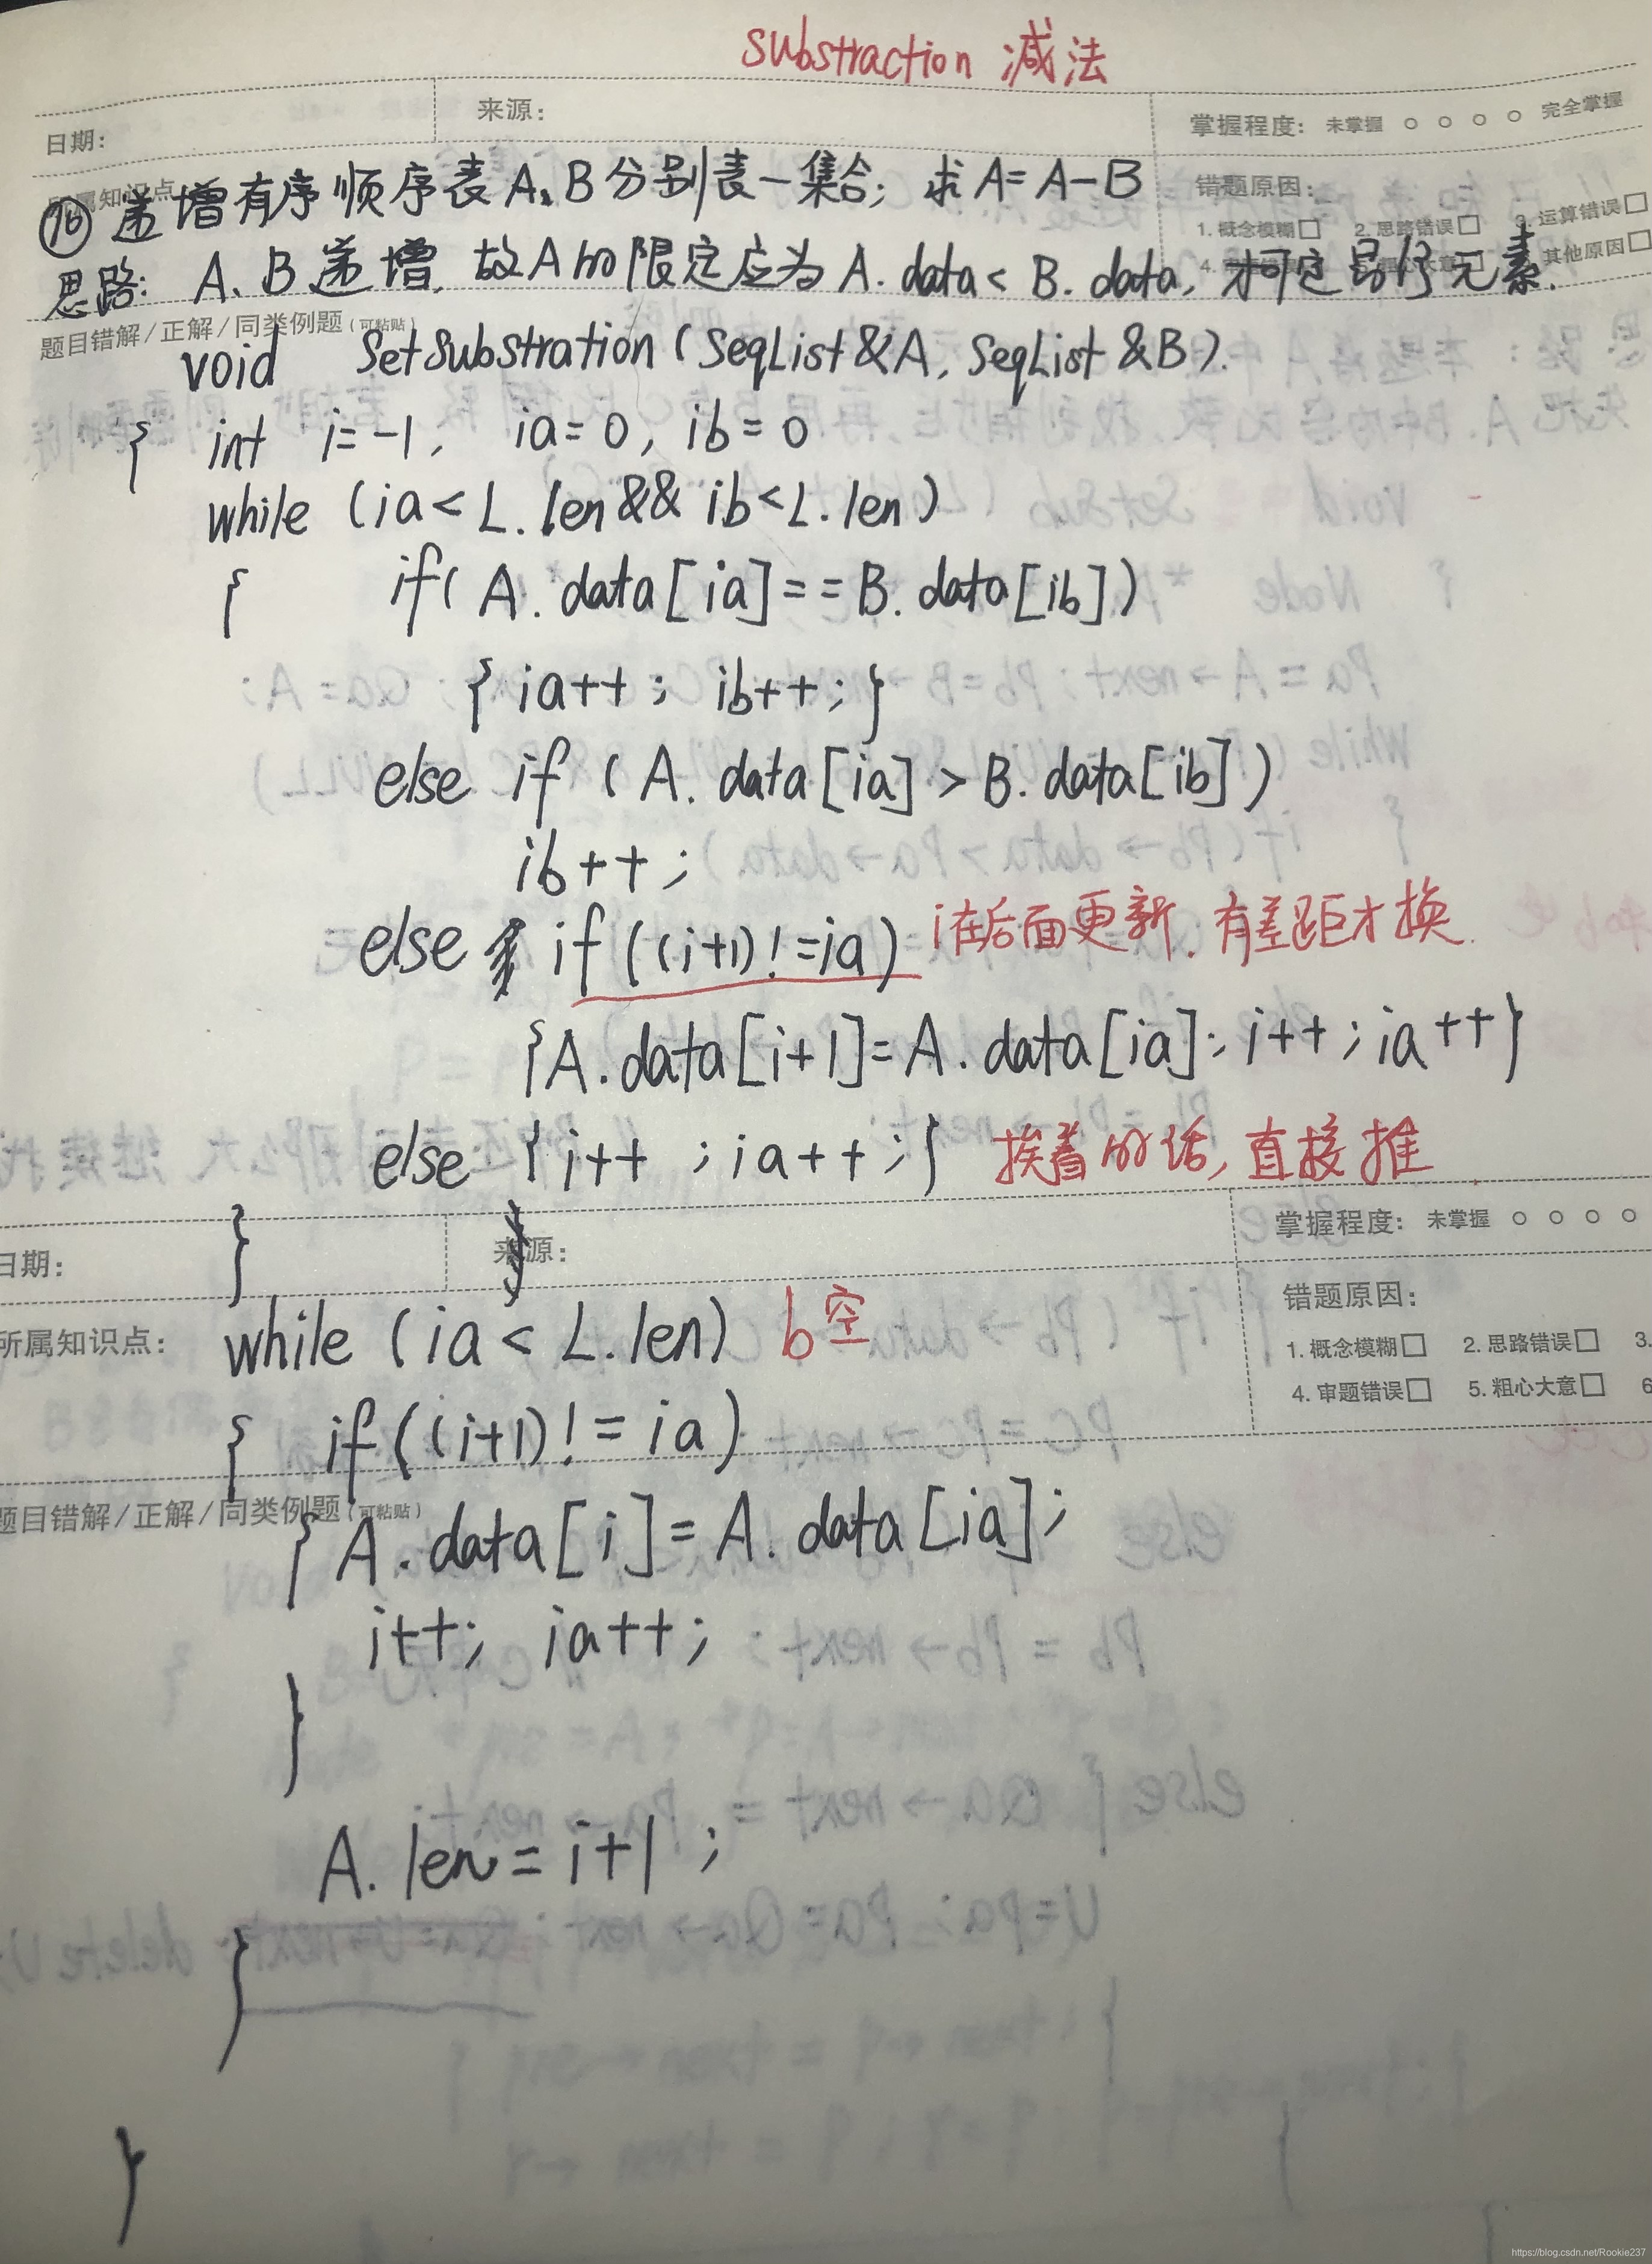 substraction 减法
日期: 来源: 掌握程度: 未掌握 ○ ○ ○ ○ 完全掌握
所属知识点 错题原因:
1. 概念模糊□ 2. 思路错误□ 3. 运算错误□
4. 大意 其他原因□
⑯ 递增有序顺序表A、B分别表一集合; 求A=A-B
思路: A、B递增, 故A的限定应为A.data<B.data, 才可定是何元素.
题目错解/正解/同类例题(可粘贴)
void SetSubstration(SeqList &A, SeqList &B).
{ int i=-1, ia=0, ib=0
while (ia<L.len && ib<L.len)
{ if(A.data[ia]==B.data[ib])
{ia++; ib++;}
else if (A.data[ia]>B.data[ib])
ib++;
else if((i+1)!=ia) i在后面更新.有差距才换.
{A.data[i+1]=A.data[ia]; i++; ia++}
else {i++; ia++;} 挨着的话,直接推
}
日期: 来源: 掌握程度: 未掌握 ○ ○ ○ ○
while (ia<L.len) b空
所属知识点: 错题原因:
1. 概念模糊□ 2. 思路错误□ 3.
4. 审题错误□ 5. 粗心大意□ 6
{ if((i+1)!=ia)
题目错解/正解/同类例题(可粘贴)
{ A.data[i]=A.data[ia];
i++; ia++;
}
A.len=i+1;
}
}
https://blog.csdn.net/Rookie237